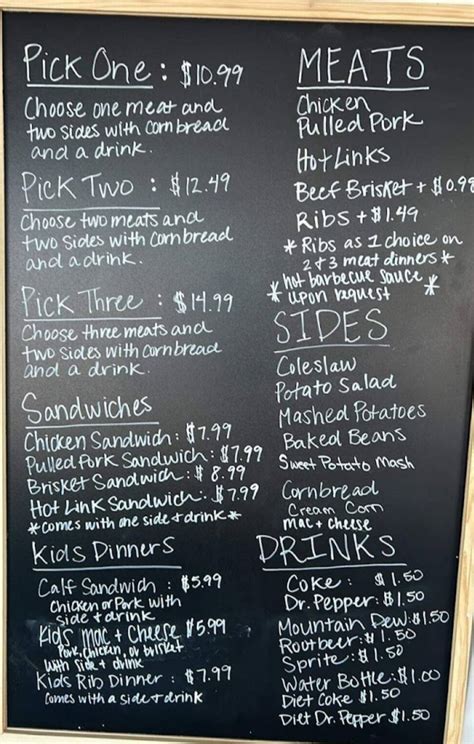 Pick One: $10.99
Choose one meat and
two sides with cornbread
and a drink.
Pick Two: $12.49
Choose two meats and
two sides with cornbread
and a drink.
Pick Three: $14.99
Choose three meats and
two sides with cornbread
and a drink.
Sandwiches
Chicken Sandwich: $7.99
Pulled Pork Sandwich: $7.99
Brisket Sandwich: $8.99
Hot Link Sandwich: $7.99
*comes with one side + drink*
Kids Dinners
Calf Sandwich: $5.99
Chicken or Pork with
side + drink
Kids Mac + Cheese $5.99
Pork, Chicken, or brisket
with side + drink
Kids Rib Dinner: $7.99
comes with a side + drink
MEATS
Chicken
Pulled Pork
Hot Links
Beef Brisket + $0.99
Ribs + $1.49
*Ribs as 1 choice on
2 + 3 meat dinners*
*hot barbecue sauce
upon request*
SIDES
Coleslaw
Potato Salad
Mashed Potatoes
Baked Beans
Sweet Potato Mash
Cornbread
Cream Corn
Mac + Cheese
DRINKS
Coke: $1.50
Dr. Pepper: $1.50
Mountain Dew: $1.50
Rootbeer: $1.50
Sprite: $1.50
Water Bottle: $1.00
Diet Coke $1.50
Diet Dr. Pepper $1.50